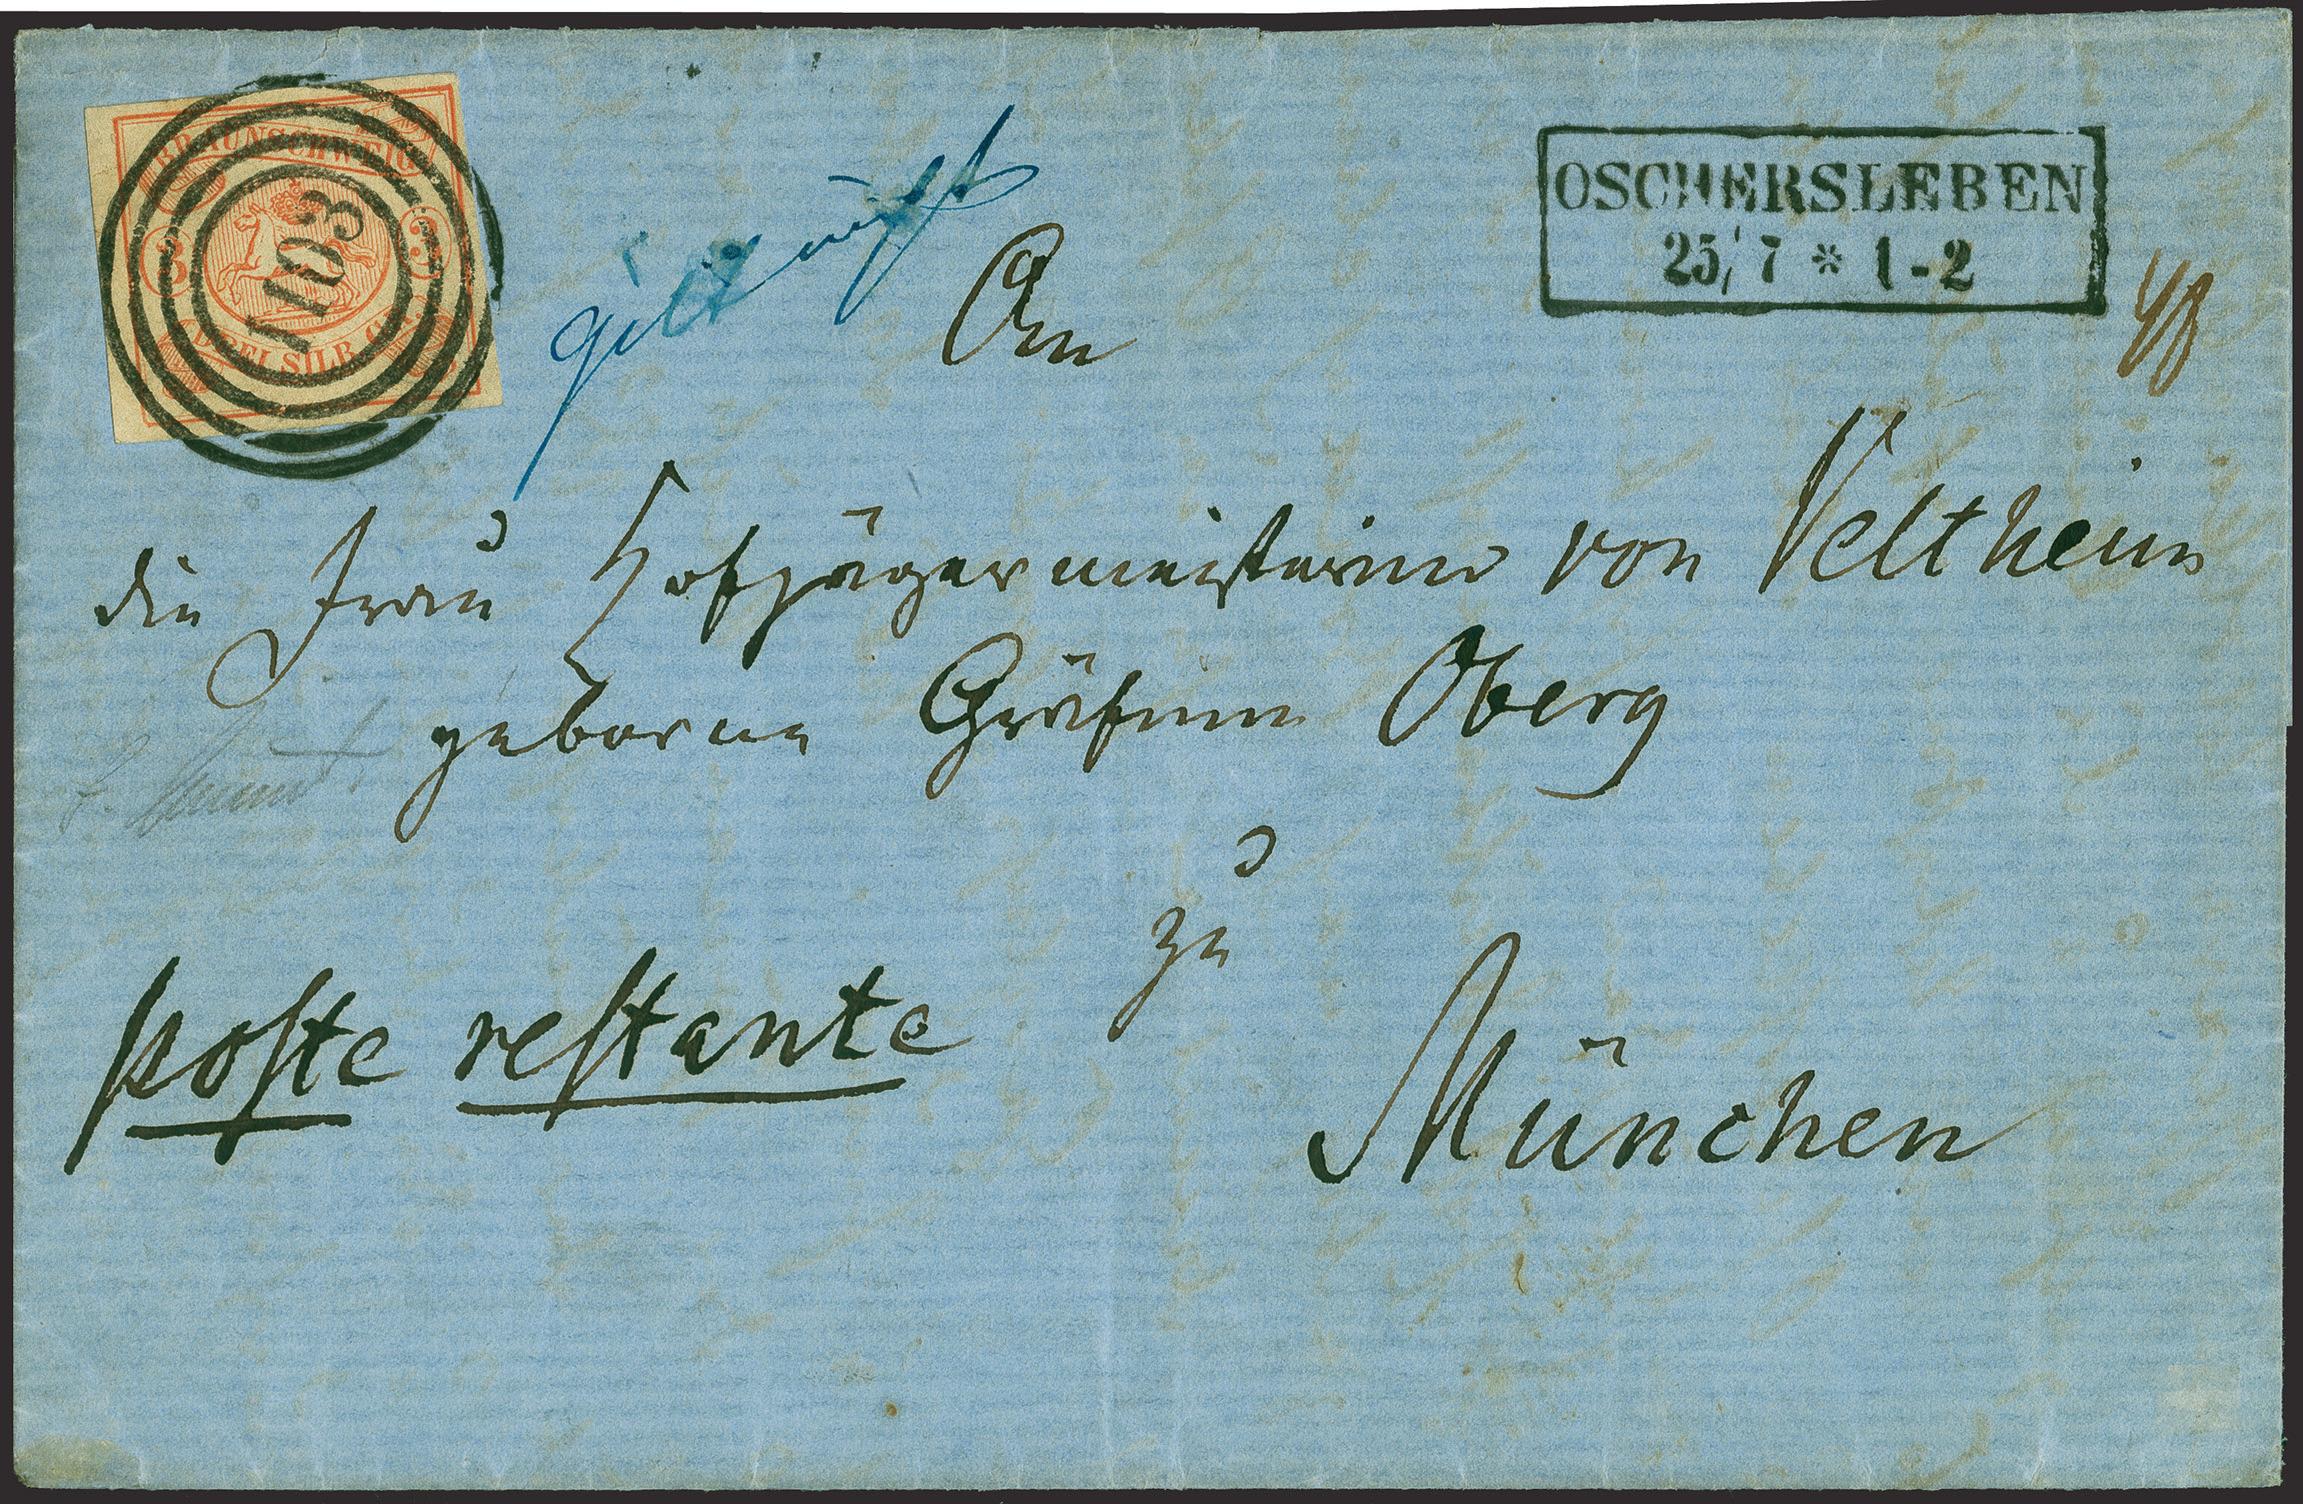 BRAUNSCHWEIG
3 3
DREI SILB.GR.
1103
gilt nicht
OSCHERSLEBEN
25/7 * 1-2
An
die Frau Hofjägermeisterin von Veltheim
geborne Gräfinn Oberg
zu
poste restante
München